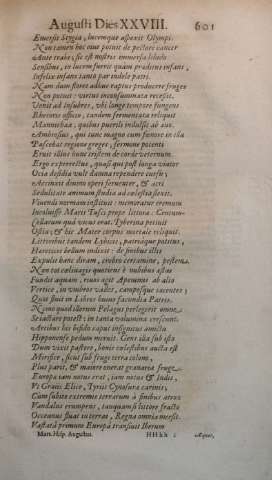 Augusti Dies XXVIII. 601
Emersit Stygia, lucemque aspexit Olympi.
Non tamen hoc eius potuit de pectore cancer
Ante trahi; sic est nostris immersa
Sensibus, in lucem fuerit quam proditus infans,
Infelix infans tanto par indole patri.
Nam dum flores adhuc raptus producere fruges
Non potuit virtus inconsummata recessit.
Venit ad Insubres, ubi longo tempore fungens
Rhetoris officio, tandem fermentata reliquit
Mannetbaa: quibus puerili indulsit ab aevo.
Ambrosius, qui tunc magno cum fomite in illa
Pascebat regione greges, sermone potenti
Eruit illius hunc tristem de corde veternum.
Ergo experrectus, quasi qui post longa
Ocia desidia vult damna rependere
Accinxit domus operi ferventer, & acri
Sedulitate animum studia ad caelestia flexit.
Vivendi normam instituit: memoratur eremum
Incoluisse Maris Tusci prope littora: Centum-
Collarum quod vicus erat. Tyberina petivit
Ostia; & hic Mater corpus mortale reliquit.
Littoribus tandem Lybicis, patriaque potitus,
Haereticis bellum indixit: de finibus illas
Expulit hanc diram, crebro certamine, pestem.
Non tot caelivagis quatiens è nubibus astas
Fundit aquam, ruens agit Apenninus ab alto
Vertice, in umbrosas valles, camposque iacentes;
Quot fluit in Libros huius facundia Patris.
Nemo quod illorum Pelagus perlegerit omne
Se iactare potest: in tanta volumina crescunt.
Artibus his bissidis caput insignitus amictu
Hipponense pedum meruit. Gens illa sub isto
Dum vixit pastore, bonis caelestibus aucta est
Mirifice, sicut sub fruge terra colono,
Plus parit, & maiore onerat granaria fruge.
Europa iam notus erat, iam notus & Indis,
Ut Graiis Elice, Tyriis Cynosura carinis;
Cum subito extremis terrarum à finibus atrox
Vandalus erumpens, tanquam si littore fracto
Oceanus fluat in terras, Regna omnia mersit.
Vastata primum Europa transivit Iberum
Mens. Hisp. Augustus. HHhh Aequor,